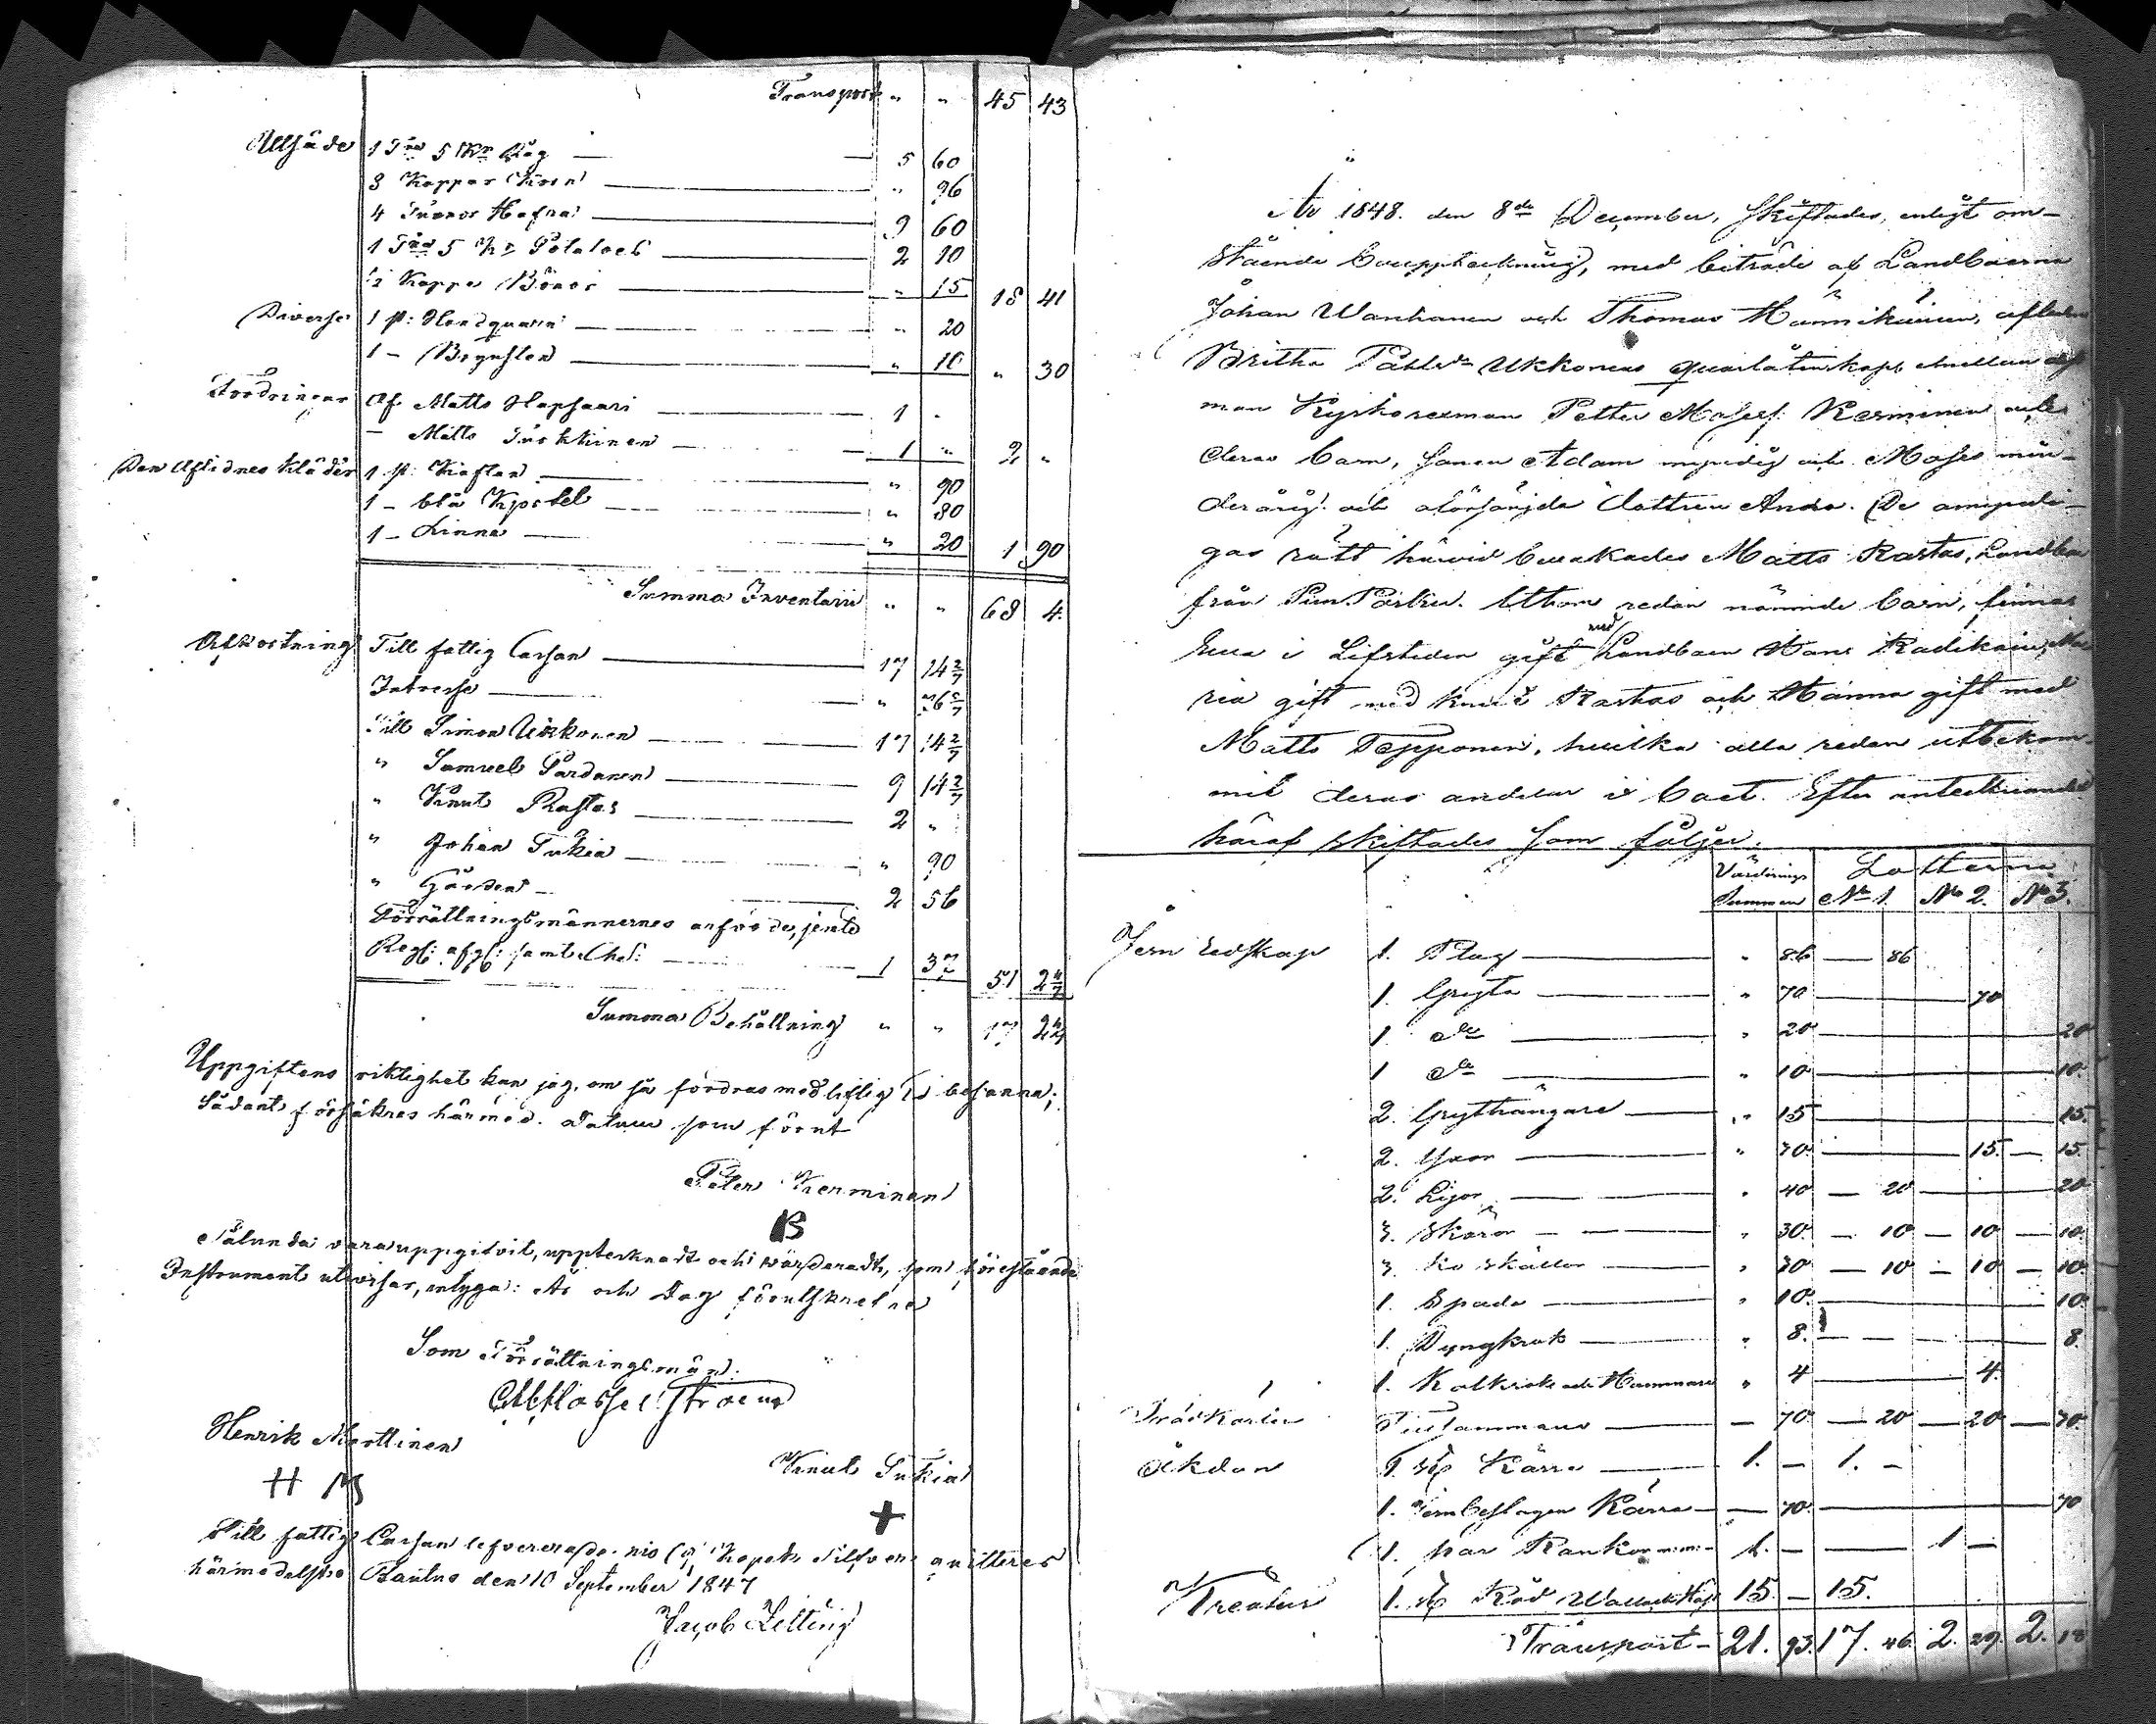 Transport " " 45 43
Utsäde 1 T:na 5 K:r Råg 5 60
3 Kappar Korn " 96
4 Tunnor Hafra 9 60
1 T:na 5 K:r Potatoes 2 10
½ Kappe Bönor " 15 18 41
Diverse 1 st: Handquarn " 20
1 - Brynsten " 10 " 30
Fordringar Af Matts Hapsaari 1 "
- Matts Turkkinen 1 " 2 "
Den Aflidnes kläder 1 st: Kaftan " 90
1 - blå Kjortel " 80
1 - Linne " 20 1 90
Summa Inventarii " " 68 4.
Afkortning Till fattig Cassan 17 14 2/7
Intresse "
Till Simon Ukkonen 17 14 2/7
" Samuel Pardanen 9 14 2/7
" Knut Rastas 2 "
" Johan Sukia " 90
" Gården 2 56
Förrättningsmännernes arfvode, jemte
Reg: afg: samt Chs: 1 37 51 2 4/7
Summa Behållning " " 17
Uppgiftens riktighet kan jag, om så fordras med liflig Ed besanna;
Sådant försäkras härmed. Datum som förut
Peter Kerminen
Sålunda vara uppgifvit, upptecknadt och värderadt, som förestående
Instrument utvisar, intyga: År och Dag förutskrefne
Som Förrättningsmän:
Henrik Marttinen
H M
Knut Sukia
+
Till fattig Cassan levererade nio (9) Kopek Silfver quitteras
härmedelst Pautus den 10 September 1847
Jacob Zitting
År 1848. den 8de December, skiftades, enligt om-
stående bouppteckning, med biträde af Landbönderna
Johan Wanhanen och Thomas Hännikäinen, aflidna
Britha Påhlsdr Ukkonens quarlåtenskap emellan
man Kyrkovexman Petter Mosess: Kerminen och
deras barn, sonen Adam myndig och Moses min-
derårig och oförsörjda dottren Anna. De omyndi-
gas rätt härvid bevakades Matts Rastas, Landbon
från Utom redan nämnde barn, finnas
Eva i Lifstiden gift med Landbon Hans Radikain, Ma
ria gift med Knut Rastas och Hanna gift med
Matts Tepponen, hvilka alla redan utbekom-
mit deras andelar i boet. Efter antecknande
häraf skiftades som följer.
Värderings Lotterna
Summan No 1. No 2. No 3.
Jern redskap 1. Plog " 86 86
1. Gryta " 70 70
1. do " 20 20
1 do " 10 10.
2. Grythängare " 15 15.
2. Yxor " 30 15. 15.
2. Lijor " 40 20 20
3. Skäror " 30. 10 10 10.
3. Ko skällor " 30 10 10 10.
1. Spade " 10. 10.
1. Dyngkrok " 8. 8.
1. Kolkrok och Hammare " 4 4.
Trädkärlen Tillsammans 70 20 20 30.
Åkdon 1. st Kärra 1. - 1. -
1. Jernbeslagen Kärra - 70. 70
1. par Rankor m:m: 1. - 1 -
Kreatur 1. st Röd Wallack Häst 15 - 15.
Transport 21. 93. 17. 46. 2. 29. 2. 18